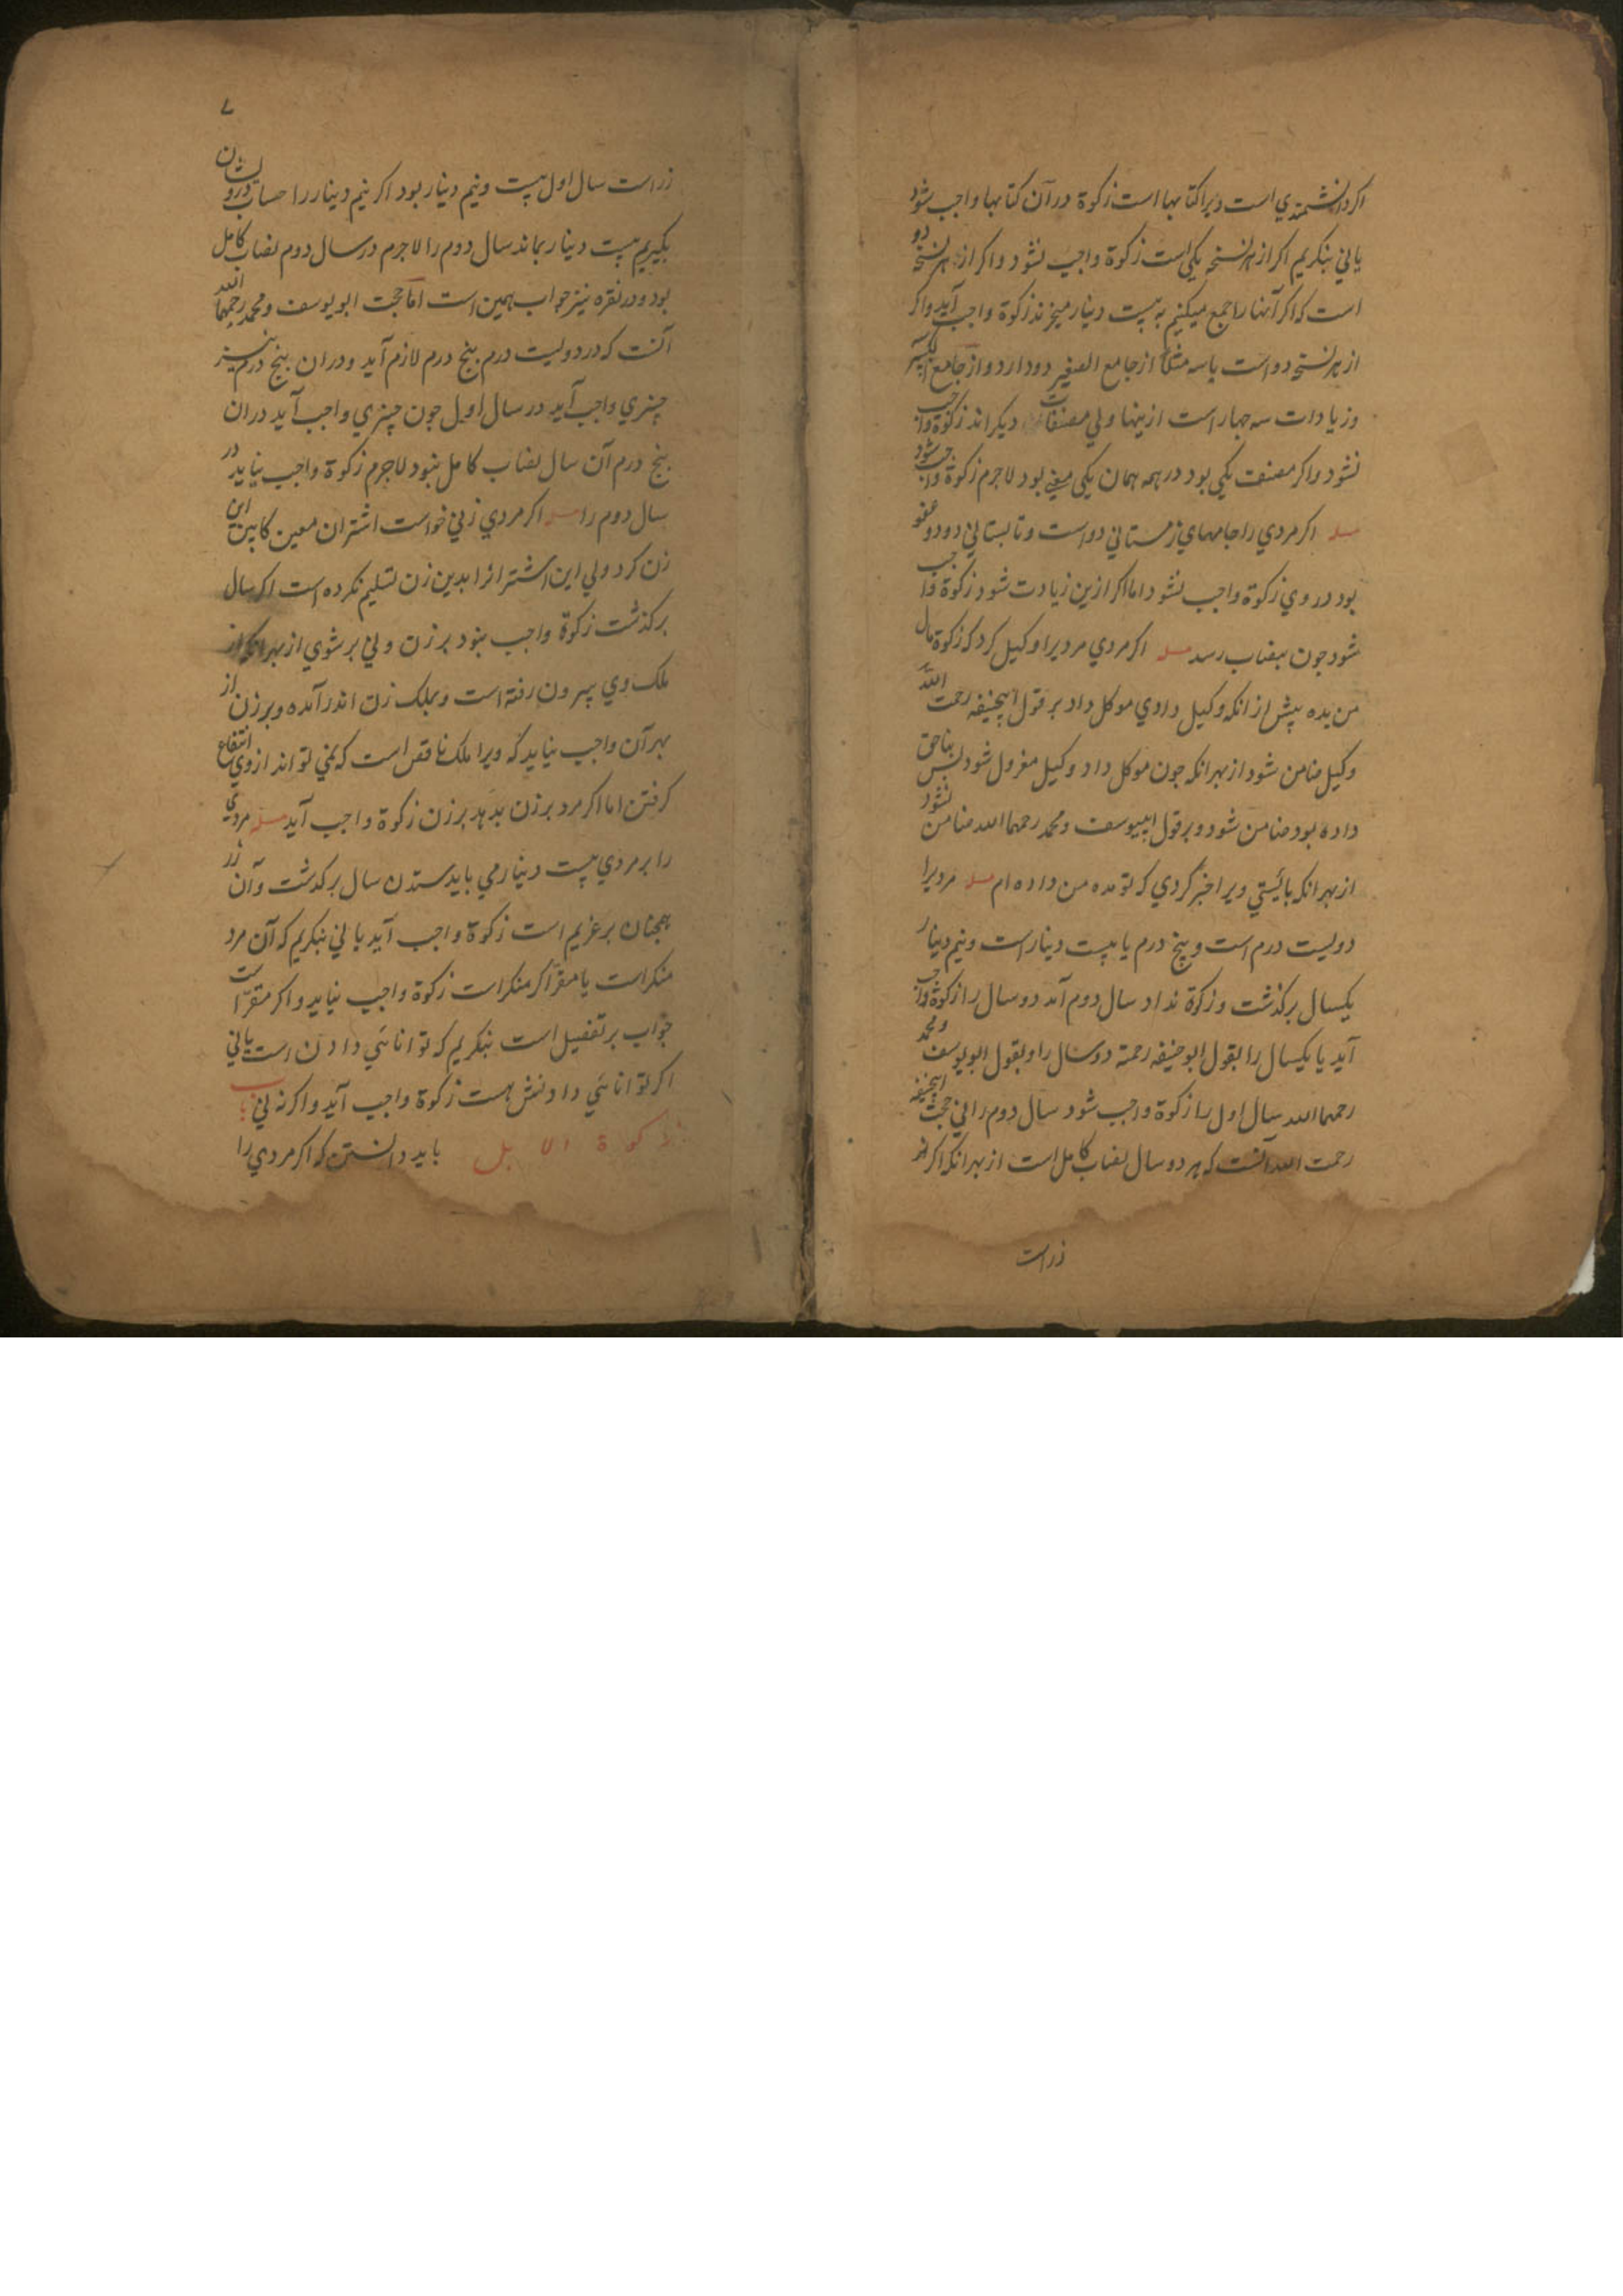 اکر دانشمندي است ویرا کتابها است زکوة در آن کتابها واجب شود
یاني بنکریم اکر از هر نسخه یکی است زکوة واجب نشود و اکر از هر نسخه دو
است که اکر آنها را جمع میکنیم به بیست دینار میخرند زکوة واجب آید و اکر
از هر نسخه دو است یا سه مثلا از جامع الصغیر دو دارد و از جامع الکبیر
و زیادات سه چهار است ازینها ولي مصنفات دیکراند زکوة واجب
نشود و اکر مصنف یکی بود در همه همان یکی معني بود لاجرم زکوة واجب شود
مسله اکر مردي را جامهاي زمستاني دو است و تابستاني دو دو عفو
بود در وي زکوة واجب نشود اما اکر ازین زیادت شود زکوة واجب
شود جون بنصاب رسد مسله اکر مردي مردیرا وکیل کرد که زکوة مال
من بده پیش از انکه وکیل دادي موکل داد بر قول ابیحنیفه رحمت الله
وکیل ضامن شود از بهر انکه جون موکل داد وکیل معزول شود پس بناحق
داده بود ضامن شود و بر قول ابییوسف و محمد رحمهما الله ضامن نشود
از بهر انکه بائیستي ویرا خبر کردي که تو مده من داده ام مسله مردیرا
دولیست درم است و پنج درم یا بیست دینار است و نیم دینار
یکسال برکذشت و زکوة نداد سال دوم آمد دو سال را زکوة واجب
آید یا یکسال را بقول ابوحنیفه رحمة دو سال را و بقول ابویوسف و محمد
رحمهما الله سال اول را زکوة واجب شود سال دوم را ني حجت ابیحنیفه
رحمت الله آنست که هر دو سال نصاب کامل است از بهر انکه اکر
زر است
۷
زر است سال اول بیست و نیم دینار بود اکر نیم دینار را حساب درویشان
بکیریم بیست دینار بماند سال دوم را لاجرم در سال دوم نصاب کامل
بود و در نقره نیز جواب همین است اما حجت ابویوسف و محمد رحمهما الله
آنست که در دولیست درم پنج درم لازم آید و در ان پنج درم نیز
چیزي واجب آید در سال اول جون چیزي واجب آید در ان
پنج درم آن سال نصاب کامل نبود لاجرم زکوة واجب نیاید در
سال دوم را مسله اکر مردي زني خواست اشتران معین کابین این
زن کرد ولي این اشترانرا بدین زن تسلیم نکرده است اکر سال
برکذشت زکوة واجب نبود بر زن و ني بر شوي از بهر انکه از
ملک وي بیرون رفته است و بملک زن اندر آمده و بر زن از
بهر آن واجب نیاید که ویرا ملک ناقص است که نمي تواند از وي انتفاع
کرفتن اما اکر مرد بر زن بدهد بر زن زکوة واجب آید مسله مردي
را بر مردي بیست دینار مي باید ستدن سال برکذشت و آن زر
همچنان بر غریم است زکوة واجب آید یا ني بنکریم که آن مرد
منکر است یا مقر اکر منکر است زکوة واجب نیاید و اکر مقر است
جواب بر تفصیل است بنکریم که توانائي دادن است یا ني
اکر توانائي دادنش هست زکوة واجب آید و اکر نه ني باب
زکوة الابل باید دانستن که اکر مردي را